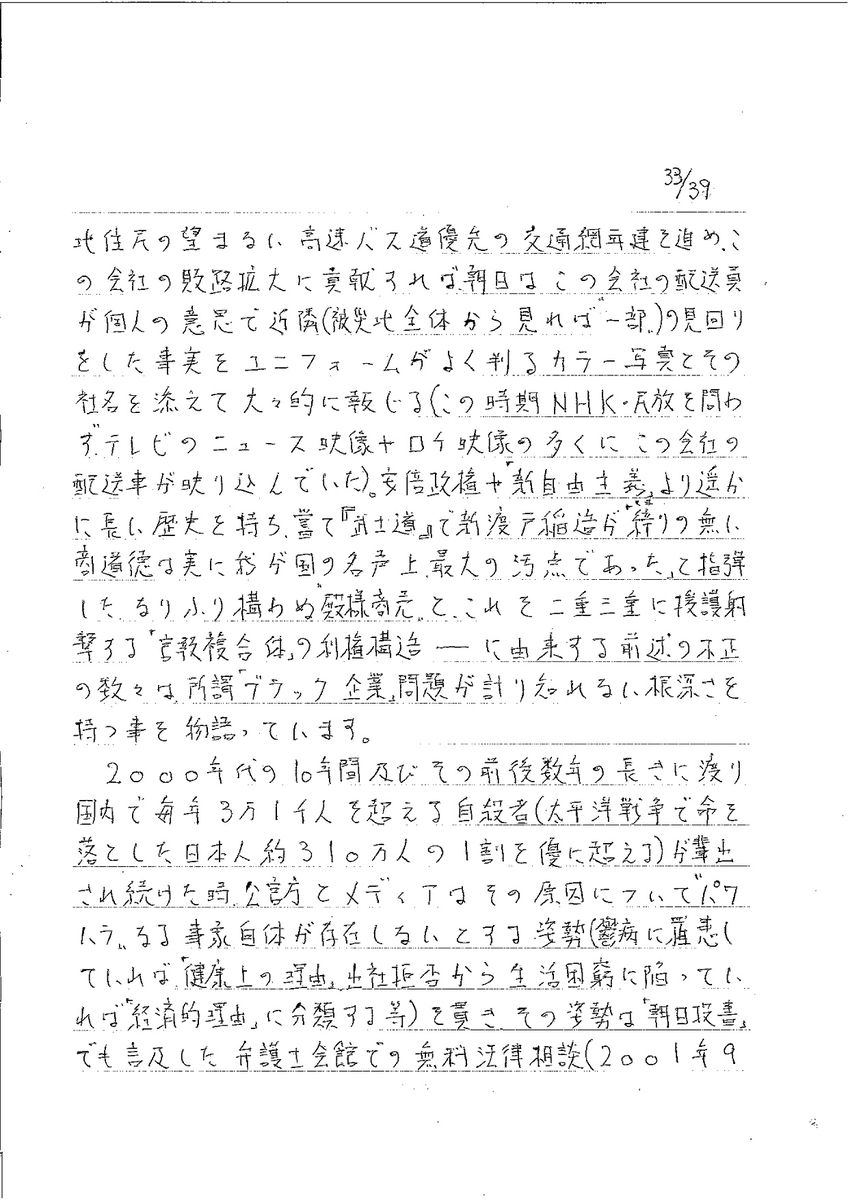 33/39
地住民の望まない高速バス道優先の交通網再建を進め、こ
の会社の販路拡大に貢献すれば、朝日はこの会社の配送員
が個人の意思で近隣(被災地全体から見れば“一部”)の見回り
をした事実をユニフォームがよく判るカラー写真とその
社名を添えて大々的に報じる(この時期NHK・民放を問わ
ず、テレビのニュース映像やロケ映像の多くにこの会社の
配送車が映り込んでいた)。安倍政権や「新自由主義」より遥か
に長い歴史を持ち、嘗て『武士道』で新渡戸稲造が「締りの無い
商道徳は実に我が国の名声上、最大の汚点であった」と指弾
した、なりふり構わぬ“殿様商売”と、これを二重三重に援護射
撃する「官報複合体」の利権構造――に由来する前述の不正
の数々は、所謂「ブラック企業」問題が計り知れない根深さを
持つ事を物語っています。
2000年代の10年間及びその前後数年の長さに渡り
国内で毎年3万1千人を超える自殺者(太平洋戦争で命を
落とした日本人約310万人の1割を優に超える)が輩出
され続けた時、公官庁とメディアはその原因について“パワ
ハラ”なる事象自体が存在しないとする姿勢(鬱病に罹患し
ていれば「健康上の理由」、出社拒否から生活困窮に陥ってい
れば「経済的理由」に分類する等)を貫き、その姿勢は「朝日投書」
でも言及した弁護士会館での無料法律相談(2001年9